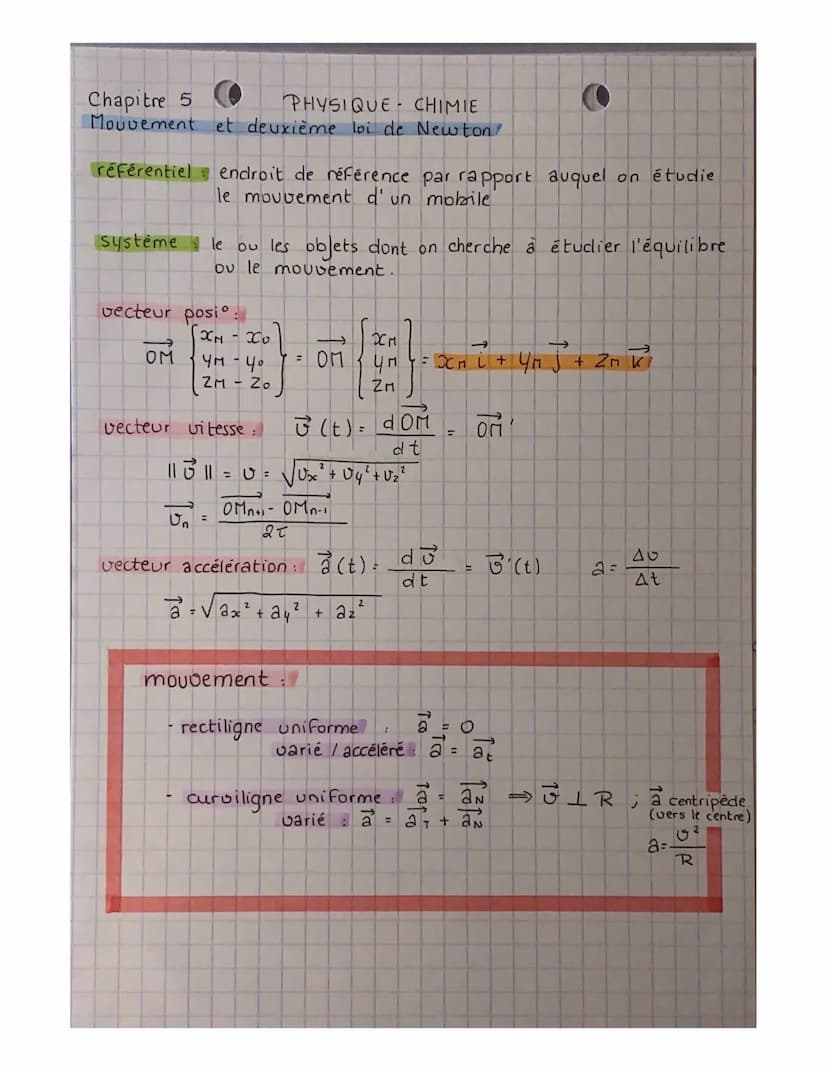 Chapitre 5 PHYSIQUE - CHIMIE
Mouvement et deuxième loi de Newton
référentiel : endroit de référence par rapport auquel on étudie
le mouvement d'un mobile
système : le ou les objets dont on cherche à étudier l'équilibre
ou le mouvement.
vecteur posi° :
OM⃗ { xM - x0 ; yM - y0 ; zM - z0 } = OM⃗ { xM ; yM ; zM } = xM i⃗ + yM j⃗ + zM k⃗
vecteur vitesse : v⃗ (t) = dOM⃗ / dt = OM⃗ '
|| v⃗ || = v = √(vx² + vy² + vz²)
vn⃗ = (OMn+1⃗ - OMn-1⃗) / 2τ
vecteur accélération : a⃗ (t) = dv⃗ / dt = v⃗ '(t) a = Δv / Δt
a⃗ = √(ax² + ay² + az²)
mouvement :
- rectiligne uniforme : a⃗ = 0
varié / accéléré : a⃗ = at⃗
- curviligne uniforme : a⃗ = aN⃗ ⟹ v⃗ ⊥ R ; a⃗ centripède
(vers le centre)
varié : a⃗ = aT⃗ + aN⃗
a = v² / R